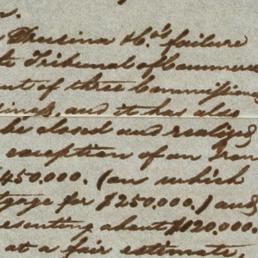 s.
Drusina & Co's failure
Tribunal of Commerce
ent of three Commission
and it has also
be closed and realized
exception of an Iron
450.000. (on which
tgage for $250.000.) and
resenting about $120.000.
at a fair estimate,